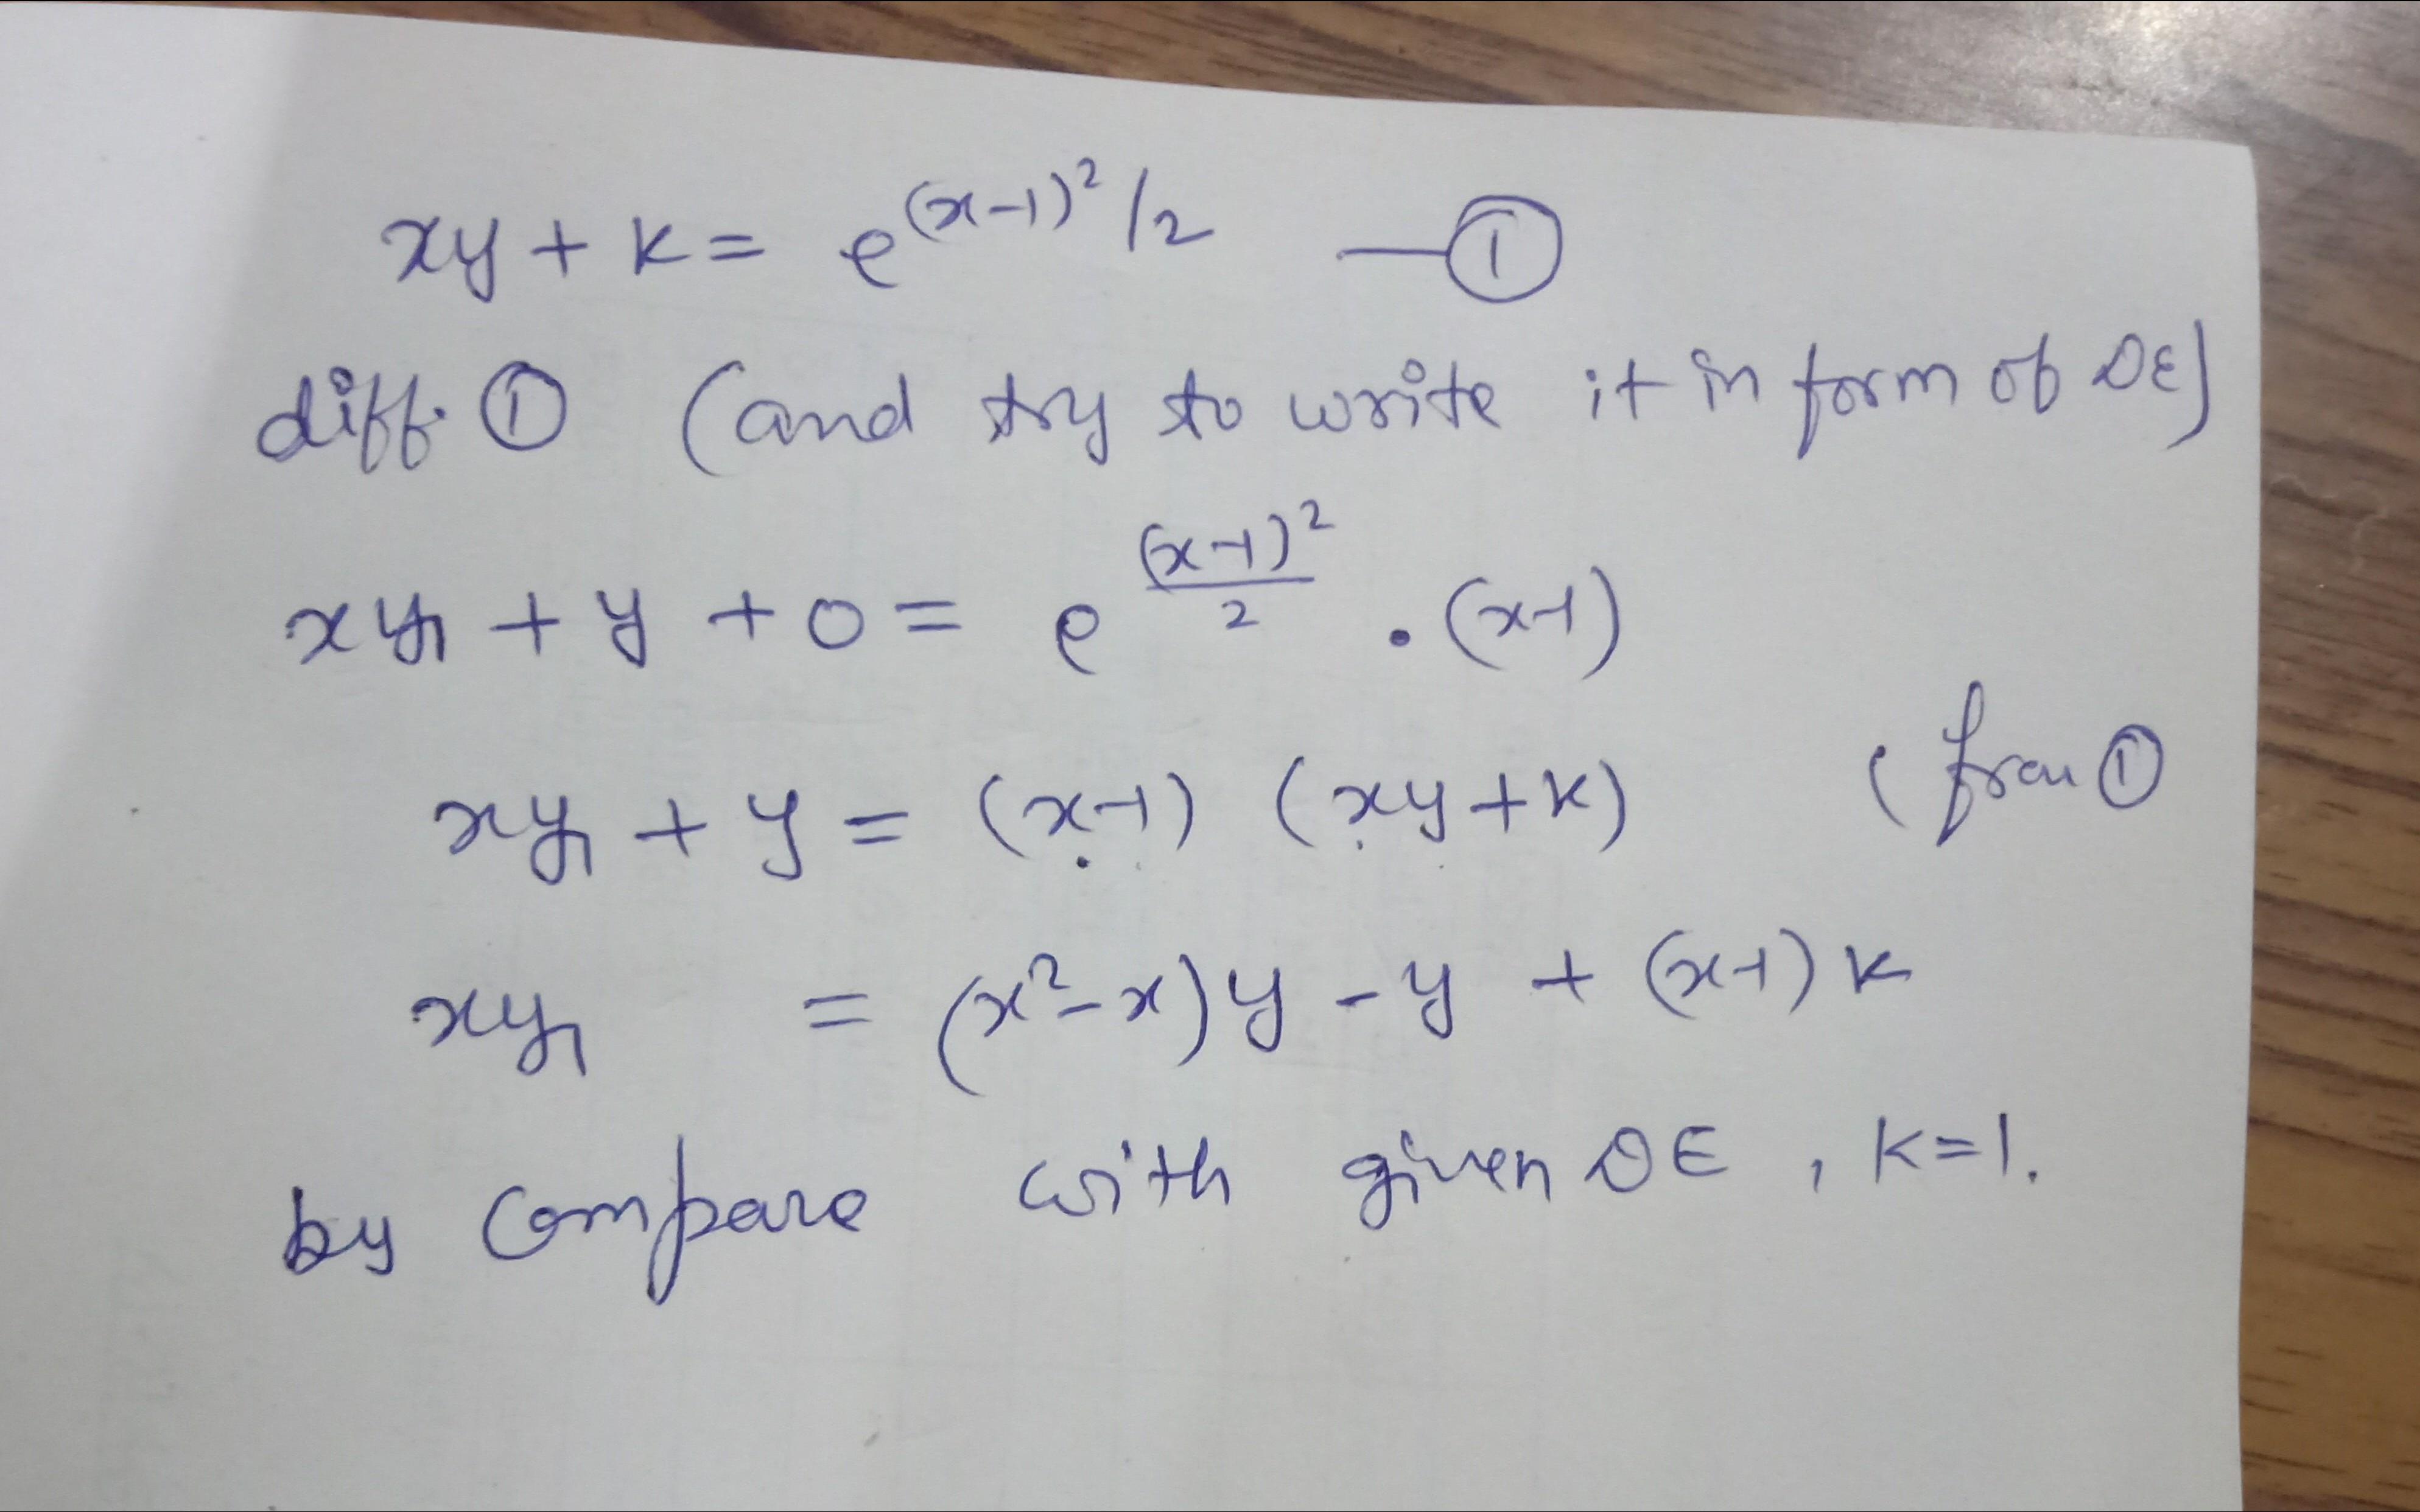 xy + k = e^{(x-1)^2/2} —①
diff. ① (and try to write it in form of DE)
xy₁ + y + 0 = e^{\frac{(x-1)^2}{2}} . (x-1)
xy₁ + y = (x-1) (xy+k) ( from ①
xy₁ = (x²-x)y - y + (x-1) k
by compare with given DE , k=1.